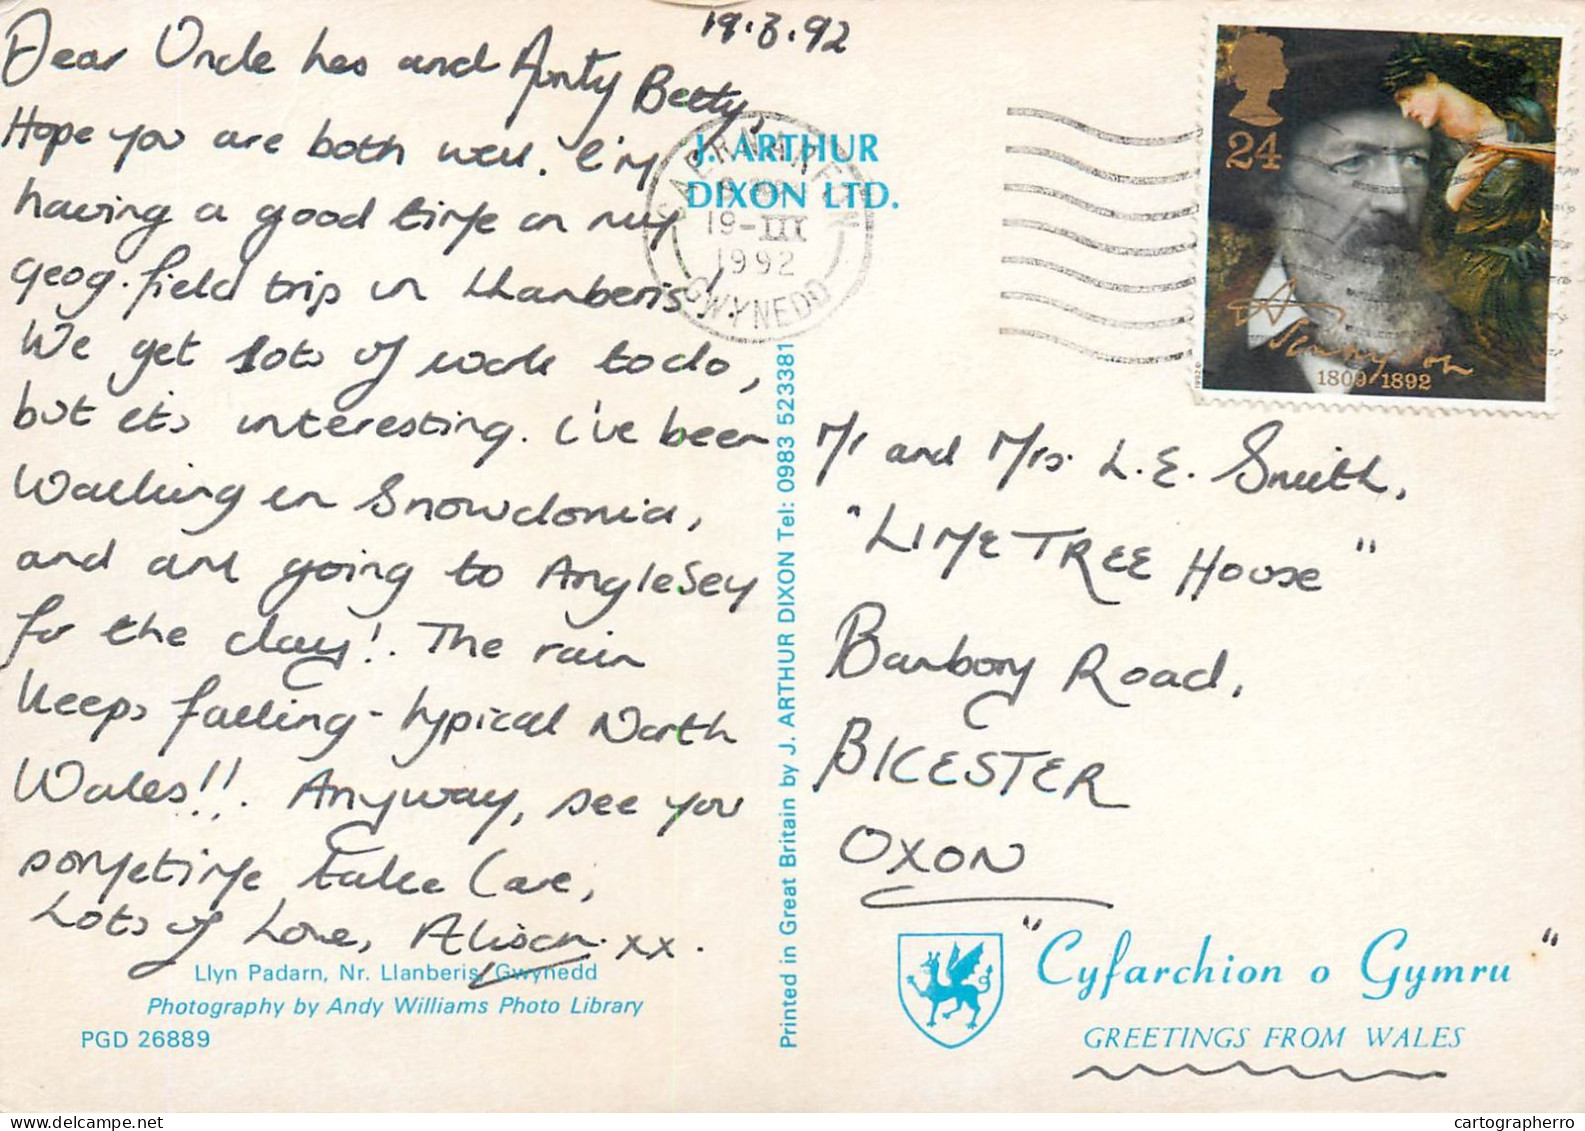 19.3.92
Dear Uncle Les and Aunty Betty,
Hope you are both well. I'm
having a good time on my
geog. field trip in Llanberis!.
We get lots of work to do,
but it's interesting. I've been
walking in Snowdonia,
and am going to Anglesey
for the day!. The rain
keeps falling - typical North
Wales!!. Anyway, see you
sometime take care,
Lots of Love, Alison xx.
Llyn Padarn, Nr. Llanberis, Gwynedd
Photography by Andy Williams Photo Library
PGD 26889
J. ARTHUR
DIXON LTD.
CAERNARFON
19-III
1992
GWYNEDD
Printed in Great Britain by J. ARTHUR DIXON Tel: 0983 523381
24
A Tennyson
1809-1892
1992
Mr and Mrs. L.E. Smith,
"LIME TREE HOUSE"
Banbury Road,
BICESTER
OXON
"Cyfarchion o Gymru"
GREETINGS FROM WALES
delcampe.net
cartographerro